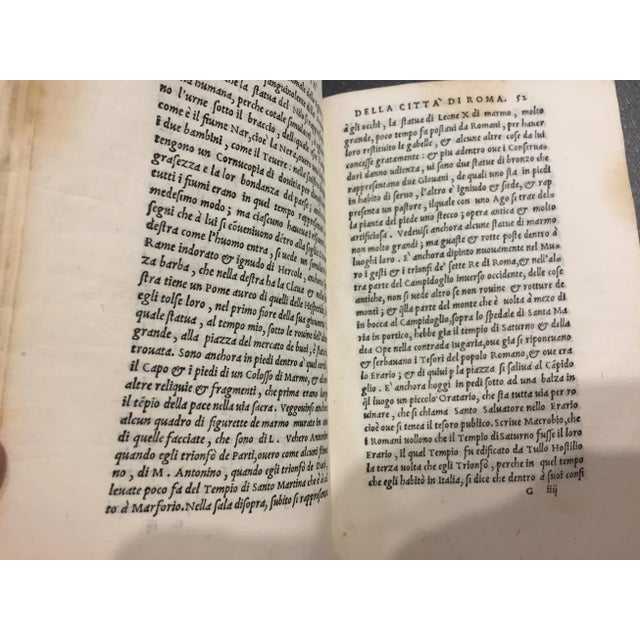 la statua del Nilo
humana, perche cotale simula
no l'urne sotto il braccio, dell'qual
come è il fiume Nar, cioè la Nera,
i due bambini, come il Teuere: nelle
tengono un Cornucopia di douitia per
grasezza e la lor bondanza del paese;
tutti i fiumi erano in quel tempo rappresen
medesimo modo; ma ciascuno haueua
segni che à lui si cōueniuono dītro alla
come l'huomo entra, si uede un simula
Rame indorato & ignudo di Hercole,
za barba, che nella destra ha la Claua & nella
stra tiene un Pome aureo di quelli delle
egli tolse loro, nel primo fiore della sua
quale statua, al tempo mio, sotto le rouine dell'
grande, alla piazza del mercato de buoi, è
trouata. Sono anchora in piedi dentro à quel
il Capo & i piedi di un Colosso di Marmo, &
altre reliquie & fragmenti, che prima erano
il tēpio della pace nella uia sacra. Veggouisi
alcun quadro di figurette de marmo murato in
di quelle facciate, che sono di L. Vehero Antonino
quando egli trionfò de Parti, ouero come alcuni
no, di M. Antonino, quando egli trionfò de
leuate poco fa del Tempio di Santo Martina che è
to à Marforio. Nella sala disopra, subito si rappresenta
DELLA CITTÀ DI ROMA. 52
à gli occhi, la statua di Leone X di marmo, molto
grande, poco tempo fa postaui da Romani, per hauer
loro restituito le gabelle, & alcune altre cose da lui
concesse gratamente: & piu adentro oue i Conserua
dori danno udienza, ui sono due statue di bronzo che
rappresentano due Giouani, de quali uno sta in piedi
in habito di seruo, l'altro è ignudo & siede, & rap
presenta un pastore, il quale con uno Ago si trae della
la pianta del piede uno stecco; opera antica & molto
artificiosa. Vedeuisi anchora alcune statue di marmo
non molto grandi; ma guaste & rotte poste dentro à
luoghi loro. E' anchora dipinto nouamente nel Mu
ro i gesti & i trionfi de' sette Re di Roma, & nell'al
tra parte del Campidoglio inuerso occidente, delle cose
antiche, non si uede altro se non rouine & rotture de
monti; & q̃lla parte del monte che è uolta à mezo di
in bocca al Campidoglio, sopra lo spedale di Santa Ma
ria in portico, hebbe gia il tempio di Saturno & della
dea Ope nella contrada iugaria, oue gia si riponeuano
& serbauano i Tesori del popolo Romano, & oue era
lo Erario; & di quiui p la piazza si saliua al Cāpido
glio. E' anchora hoggi in piedi sotto ad una balza in
q̃l luogo un piccolo Oratorio, che sta tutta uia per ro
uinare, che si chiama Santo Saluatore nello Erario
cioè oue si tenea il tesoro publico. Scriue Macrobio, che
i Romani uollono che il Tempio di Saturno fusse il loro
Erario, il qual Tempio fu edificato da Tullo Hostilio
la terza uolta che egli Trionfò, perche in quel tempo
che egli habitò in Italia, si dice che dentro à suoi confi
G iiij